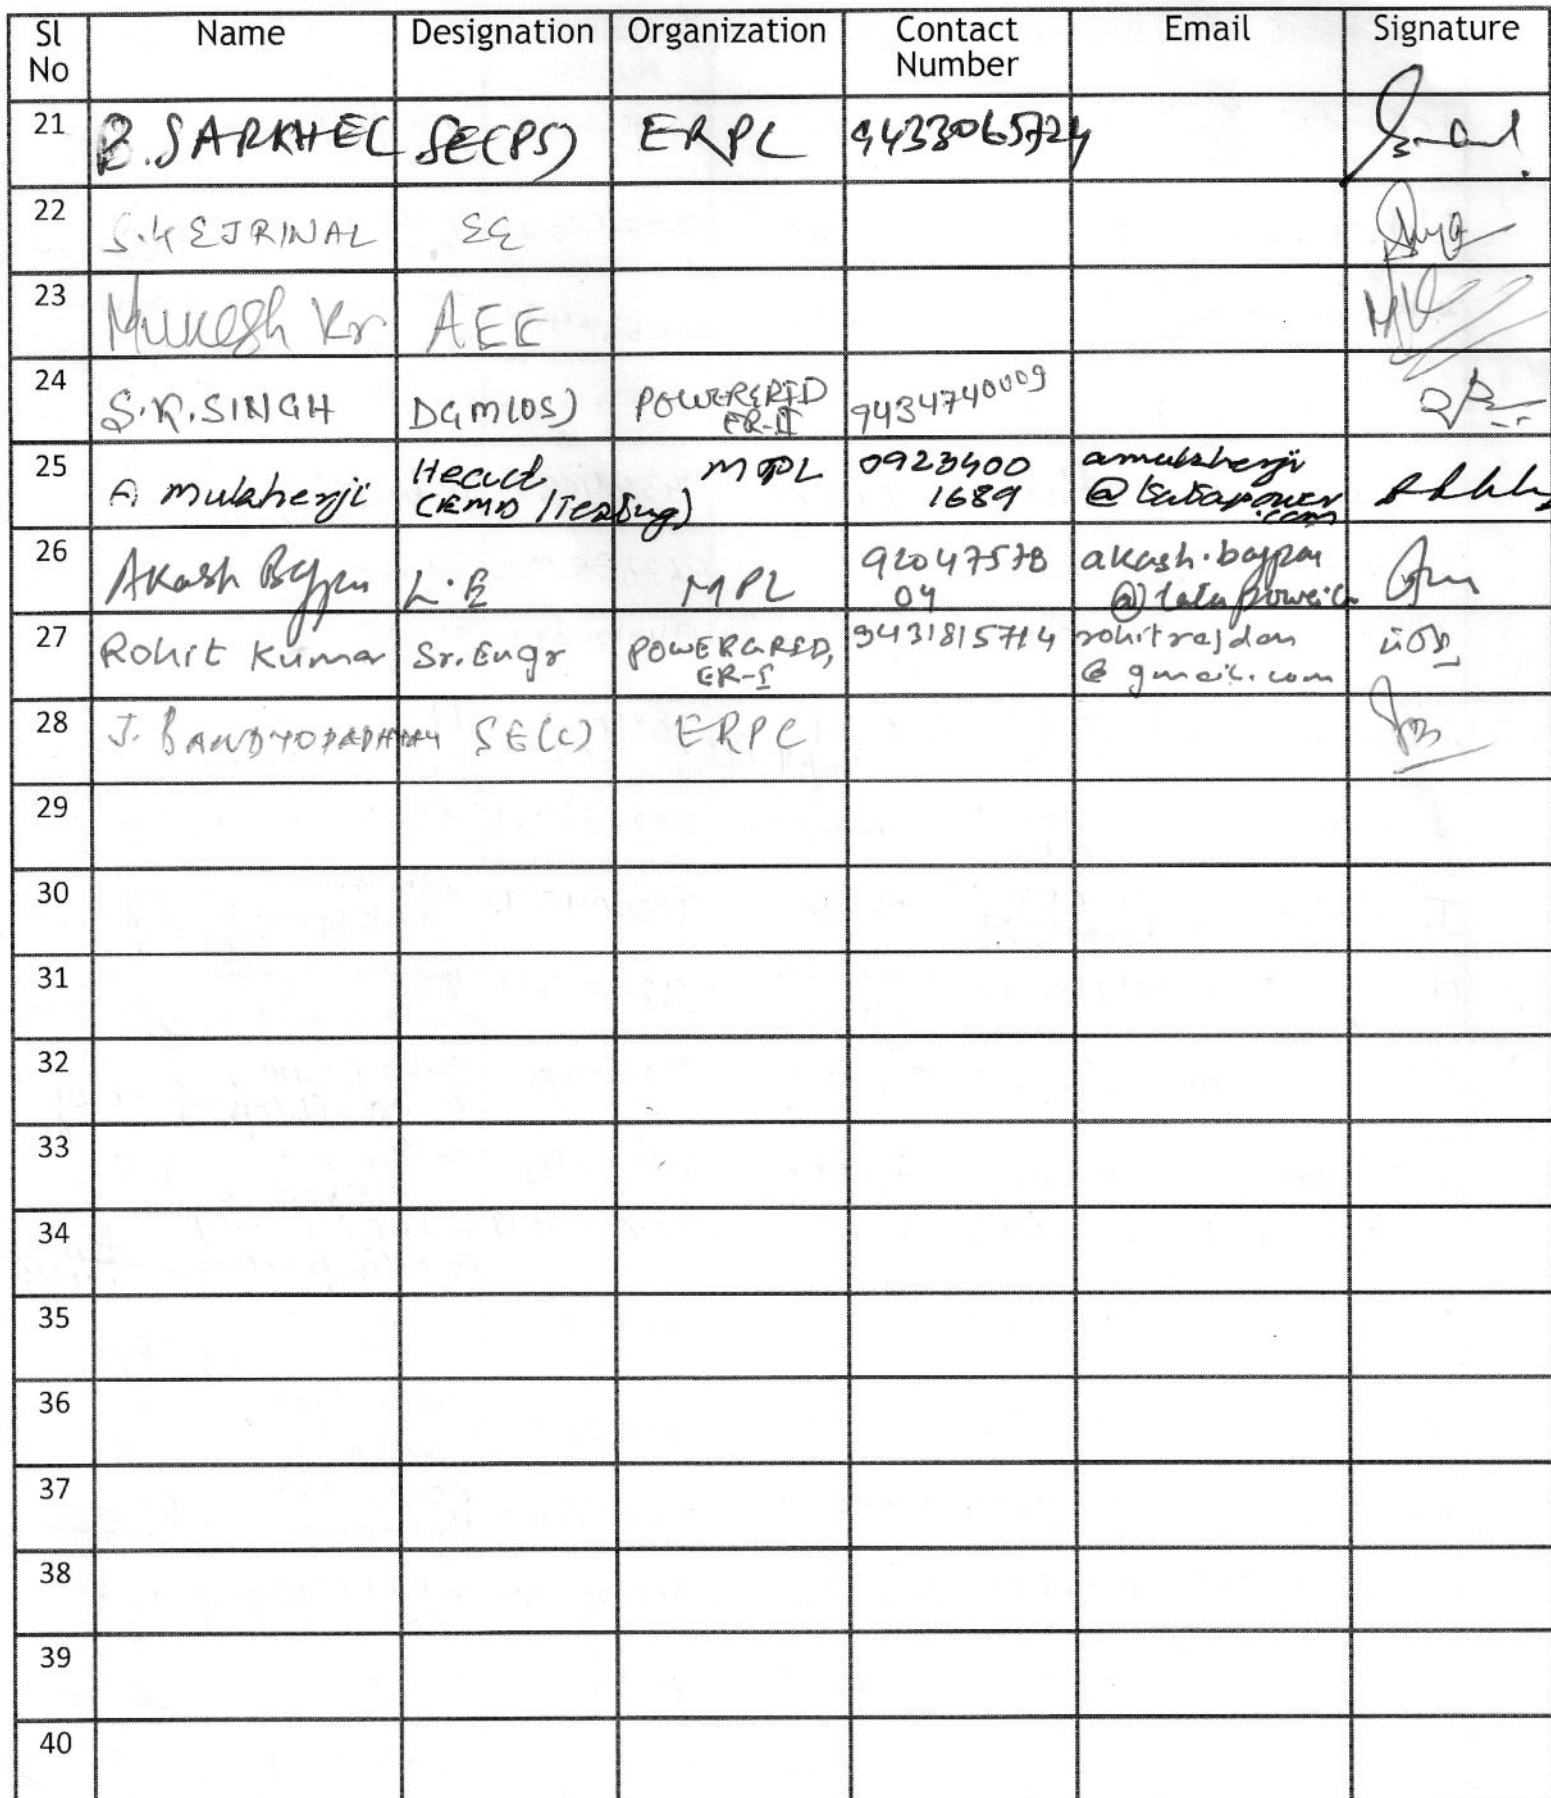 Sl No Name Designation Organization Contact Number Email Signature
21 B. SARKHEL SE(PS) ERPC 9433065724
22 SE
23 Mukesh Kr AEE
24 S.K. SINGH DGM(OS) POWERGRID ER-II 9434740009
25 A mukherji Head (CEMD / Testing) MPL 0923400 1689 amukherji @tatapower .com
26 Akash Bajpai L.E MPL 92047578 04 akash.bajpai
27 Rohit Kumar Sr. Engr POWERGRID, ER-I 9431815714 rohitrajdan @ gmail.com
28 J. BANDYOPADHYAY SE(C) ERPC
29
30
31
32
33
34
35
36
37
38
39
40